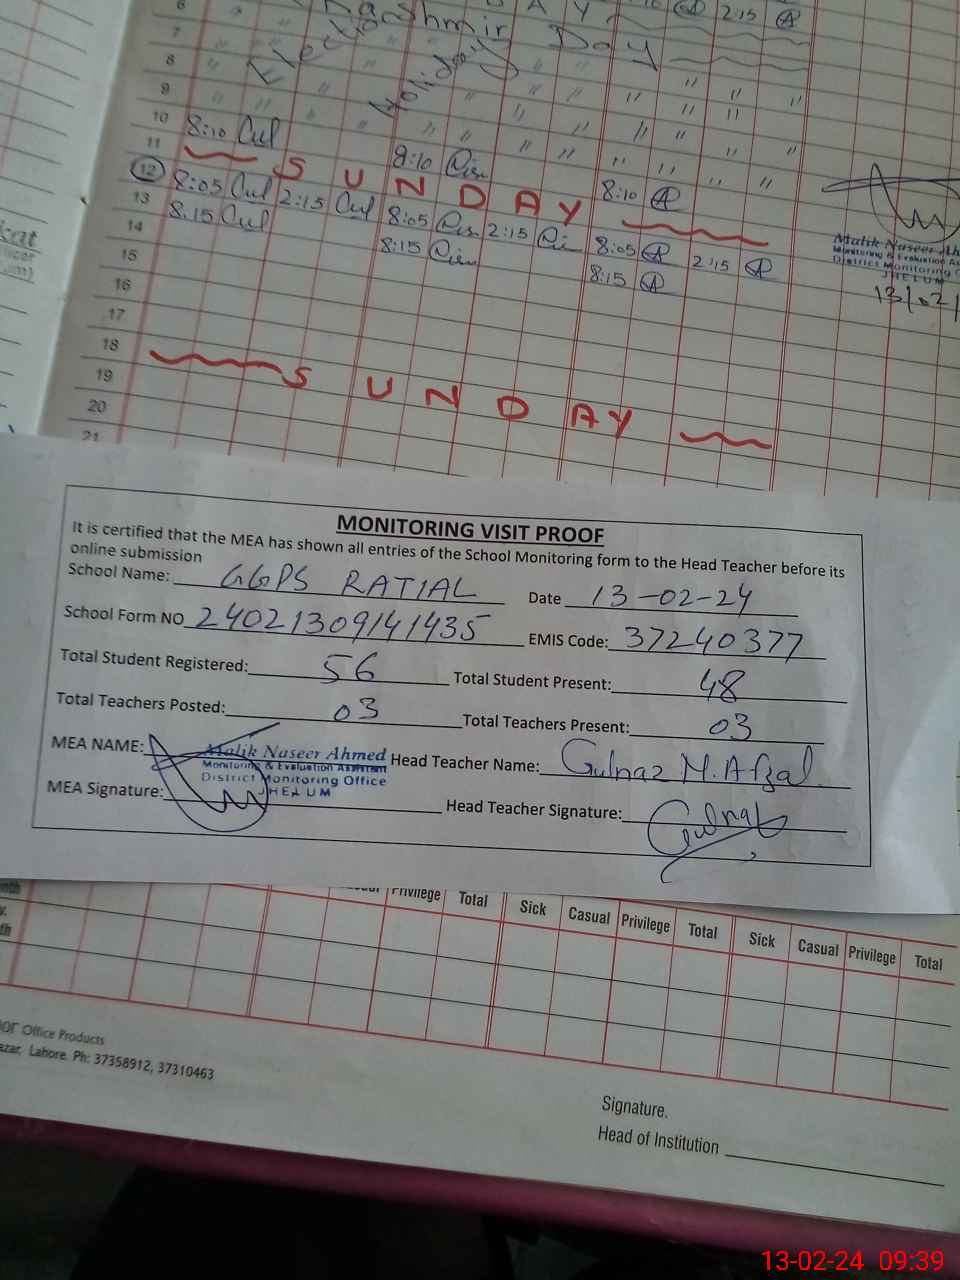 2:15
6
Kashmir Day
7
Election Holiday
8
9
10
8:10
11
8:10
8:10
S U N D A Y
12
8:05 2:15 8:05 2:15 8:05 2:15
13
8:15 8:15 8:15
14
15
16
17
18
S U N D A Y
19
20
21
Malik Naseer Ah
Monitoring & Evaluation As
District Monitoring O
JHELUM
13/02/
MONITORING VISIT PROOF
It is certified that the MEA has shown all entries of the School Monitoring form to the Head Teacher before its
online submission
School Name: GGPS RATIAL Date 13-02-24
School Form NO 24021309141435 EMIS Code: 37240377
Total Student Registered: 56 Total Student Present: 48
Total Teachers Posted: 03 Total Teachers Present: 03
MEA NAME: Malik Naseer Ahmed Head Teacher Name: Gulnaz M. Afzal
Monitoring & Evaluation Assistant
District Monitoring Office
JHELUM
MEA Signature: Head Teacher Signature: Gulnaz
Privilege Total Sick Casual Privilege Total Sick Casual Privilege Total
Office Products
azar, Lahore. Ph: 37358912, 37310463
Signature.
Head of Institution
13-02-24 09:39